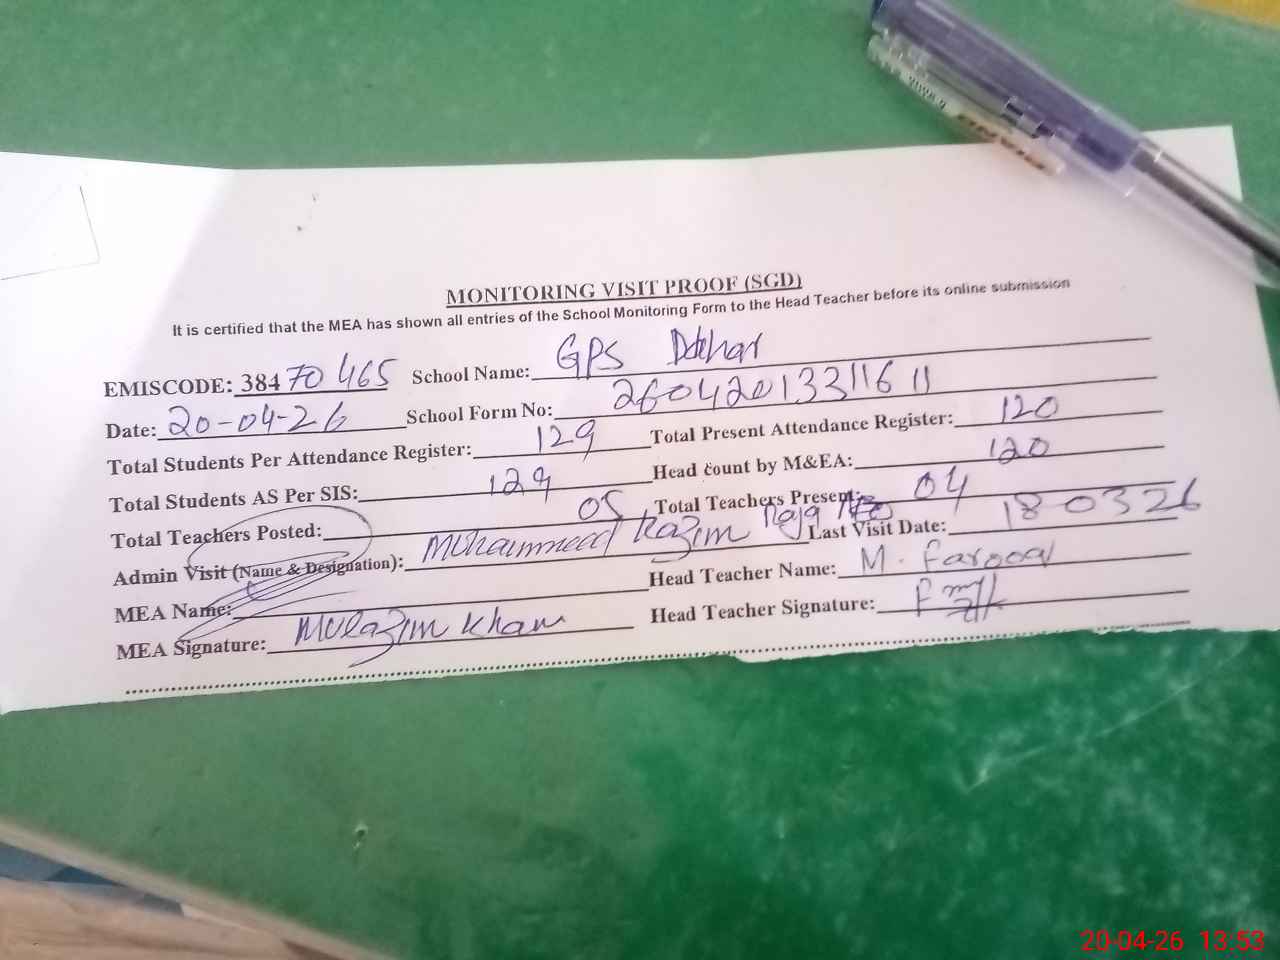 MONITORING VISIT PROOF (SGD)
It is certified that the MEA has shown all entries of the School Monitoring Form to the Head Teacher before its online submission
EMISCODE: 38470465 School Name: GPS
Date: 20-04-26 School Form No: 26042013311611
Total Students Per Attendance Register: 129 Total Present Attendance Register: 120
Total Students AS Per SIS: 129 Head count by M&EA: 120
Total Teachers Posted: 05 Total Teachers Present: 04
Admin Visit (Name & Designation): Muhammad Kazim Raja Last Visit Date: 180326
MEA Name: Head Teacher Name: M. Farooq
MEA Signature: Mulazim Khan Head Teacher Signature:
PIANO
20-04-26 13:53